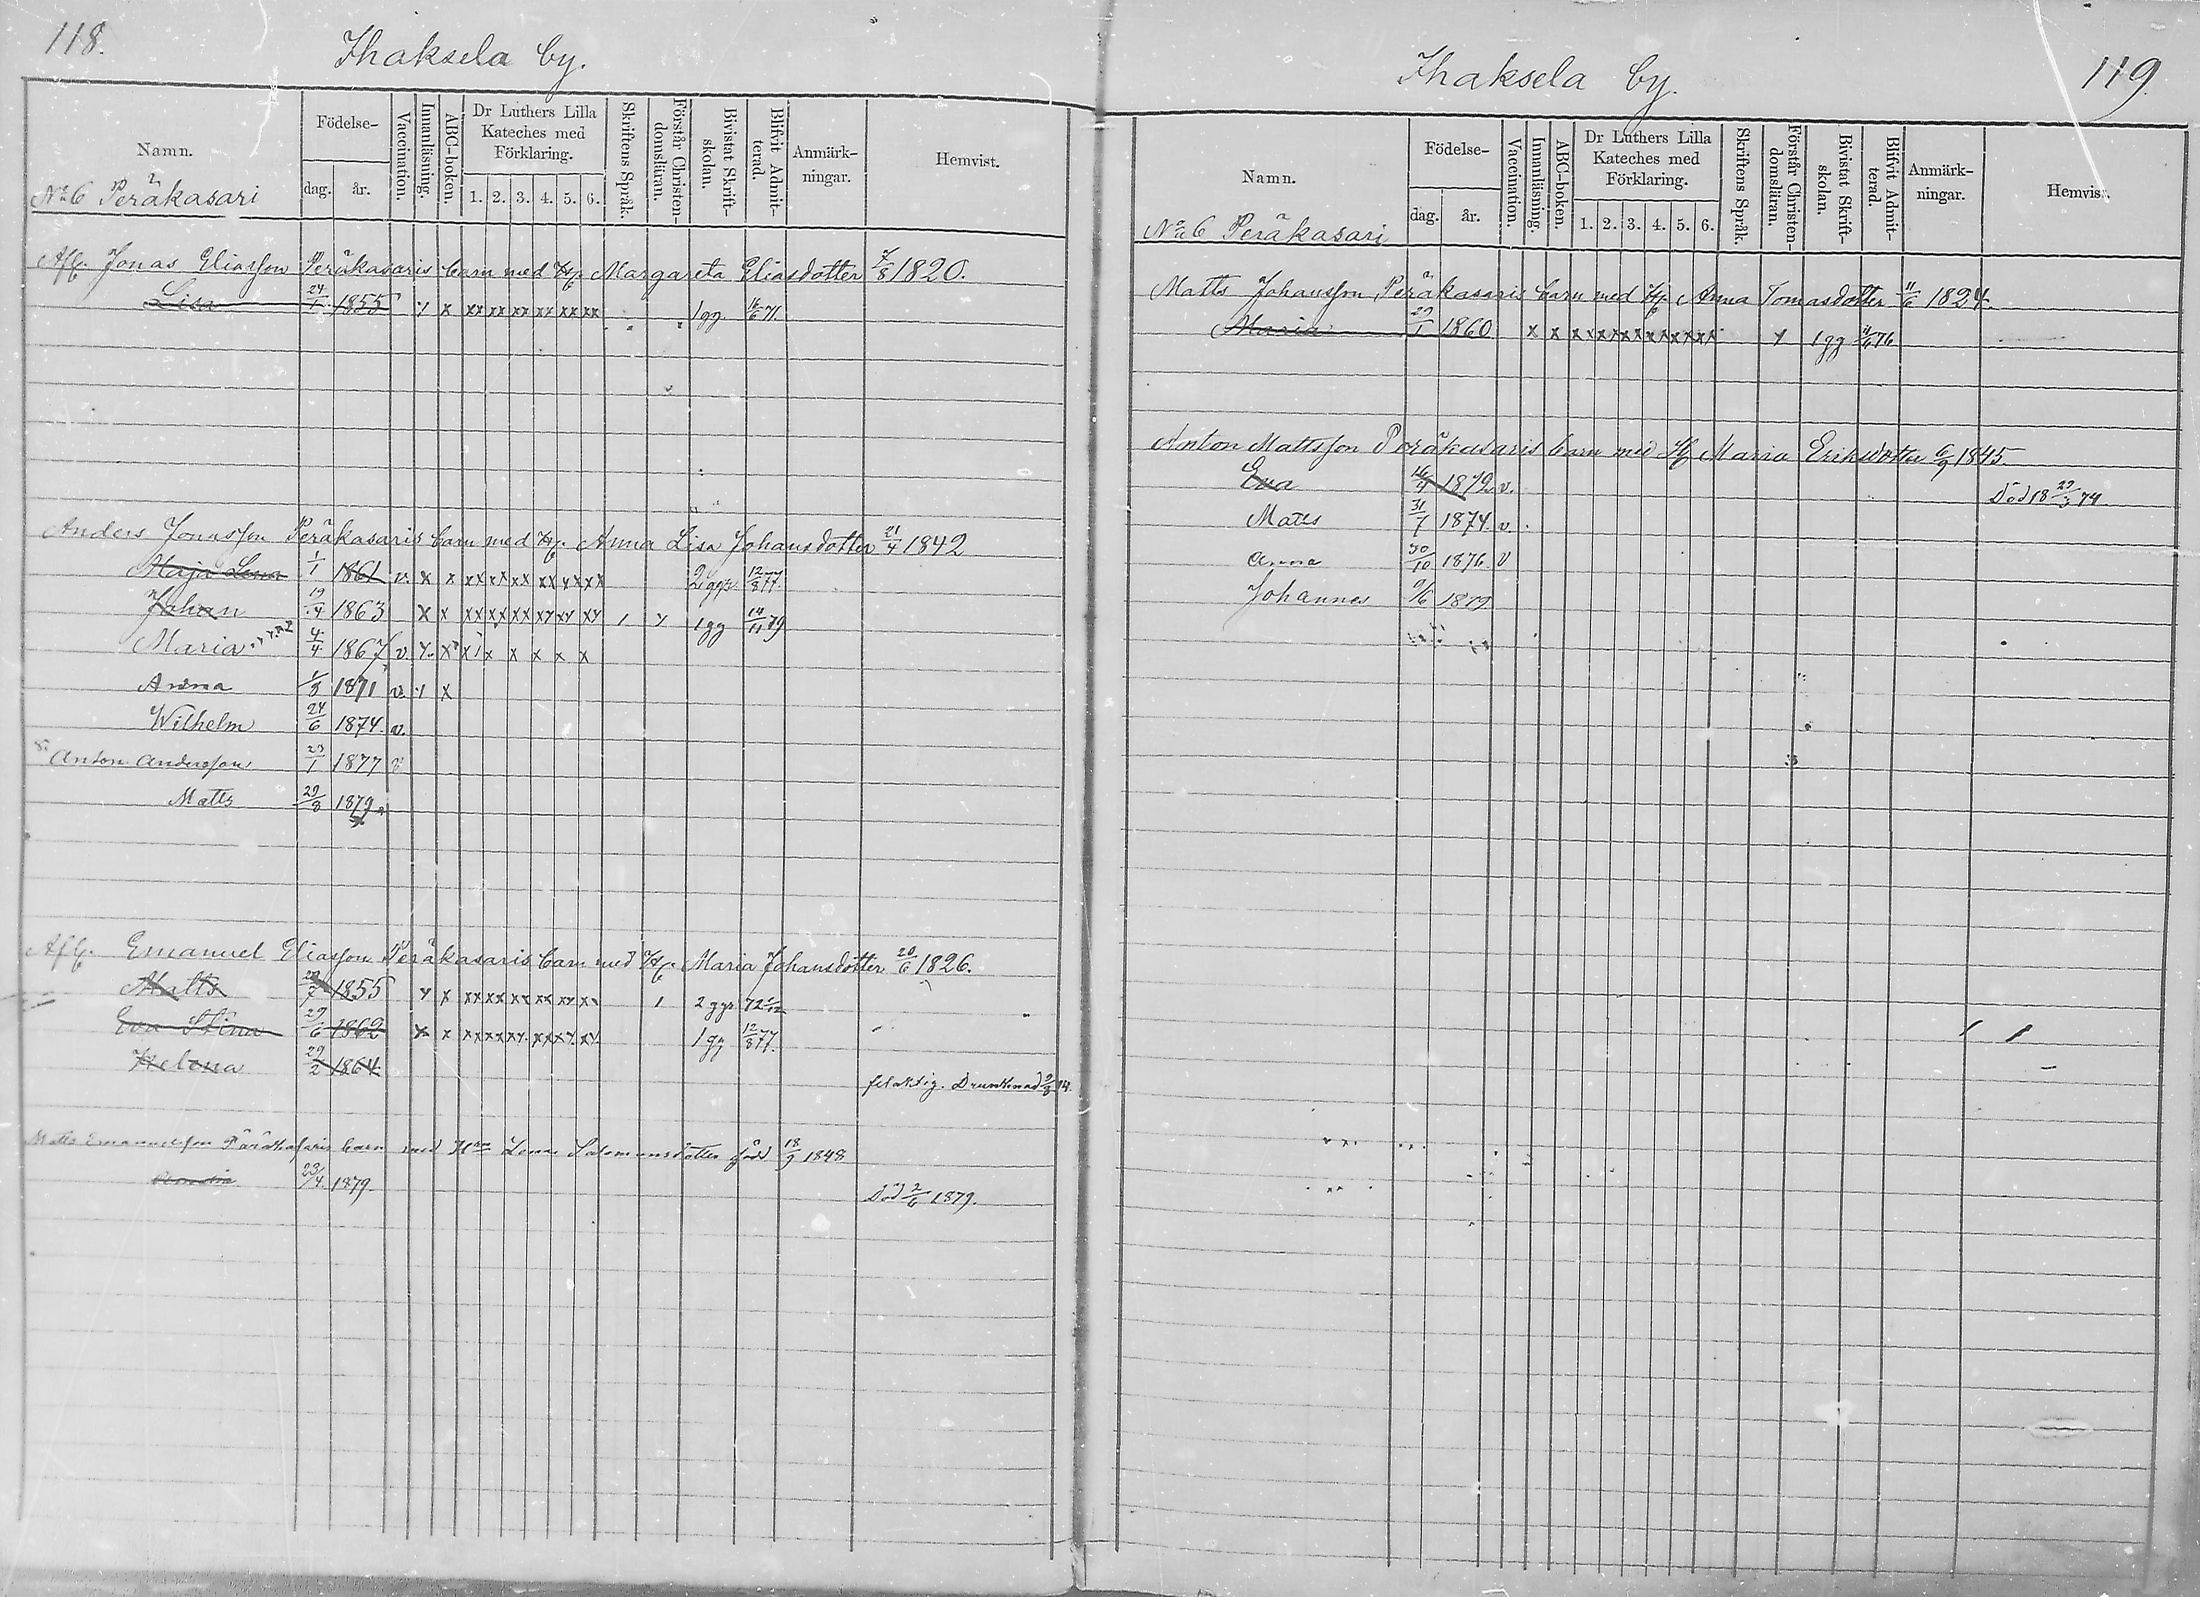 118.
Ihaksela by.
Namn.
Födelse-
dag. år.
Vaccination.
Innanläsning.
ABC-boken.
Dr Luthers Lilla Kateches med Förklaring.
1. 2. 3. 4. 5. 6.
Skriftens Språk.
Förstår Christen-domsläran.
Bivistat Skrift-skolan.
Blifvit Admit-terad.
Anmärk-ningar.
Hemvist.
No 6 Peräkasari
Afl. Jonas Eliasson Peräkasaris barn med Margareta Eliasdotter 7/8 1820.
Lisa 24/1 1855 x x xx xx xx xx xx xx 1 gg 71.
Anders Jonasson Peräkasaris barn med Anna Lisa Johansdotter 21/4 1842
Maja Lena 1/1 1861 v. x x xx xx xx xx xx xx 2 ggr. 12/8 77.
Johan 19/4 1863 x x xx xx xx xx xx xx 1 gg 14/11 79
Maria 4/4 1867 v. x x x x x x x
Anna 1/3 1871 v. x x
Wilhelm 24/6 1874. v.
Anton Andersson 23/1 1877 v
Matts 29/8 1879
Afl. Emanuel Eliasson Peräkasaris barn med Maria Johansdotter 20/6 1826.
Matts 1855 x x xx xx xx xx xx xx 1 2 ggr 72
Eva Stina 29/6 1862 x x xx xx xx xx xx xx 1 gg 12/8 77.
Helena 29/2 1864 Drunknad 2/8 74.
Matts Emanuelsson Peräkasaris barn med Lena Salomonsdotter född 18/9 1848
23/4. 1879. Död 2/6 1879.
119.
Ihaksela by.
Namn.
Födelse-
dag. år.
Vaccination.
Innanläsning.
ABC-boken.
Dr Luthers Lilla Kateches med Förklaring.
1. 2. 3. 4. 5. 6.
Skriftens Språk.
Förstår Christen-domsläran.
Bivistat Skrift-skolan.
Blifvit Admit-terad.
Anmärk-ningar.
Hemvist.
No 6 Peräkasari
Matts Johansson Peräkasaris barn med Anna Tomasdotter 11/6 1824.
Maria 29/1 1860 x x xx xx xx xx xx xx x 1 gg 76
Anton Mattsson Peräkasaris barn med Maria Eriksdotter 6/9 1845.
Eva 1872 v. Död 18 29/3 74.
Matts 31/7 1874. v.
Anna 30/10 1876. v
Johannes 9/6 1879